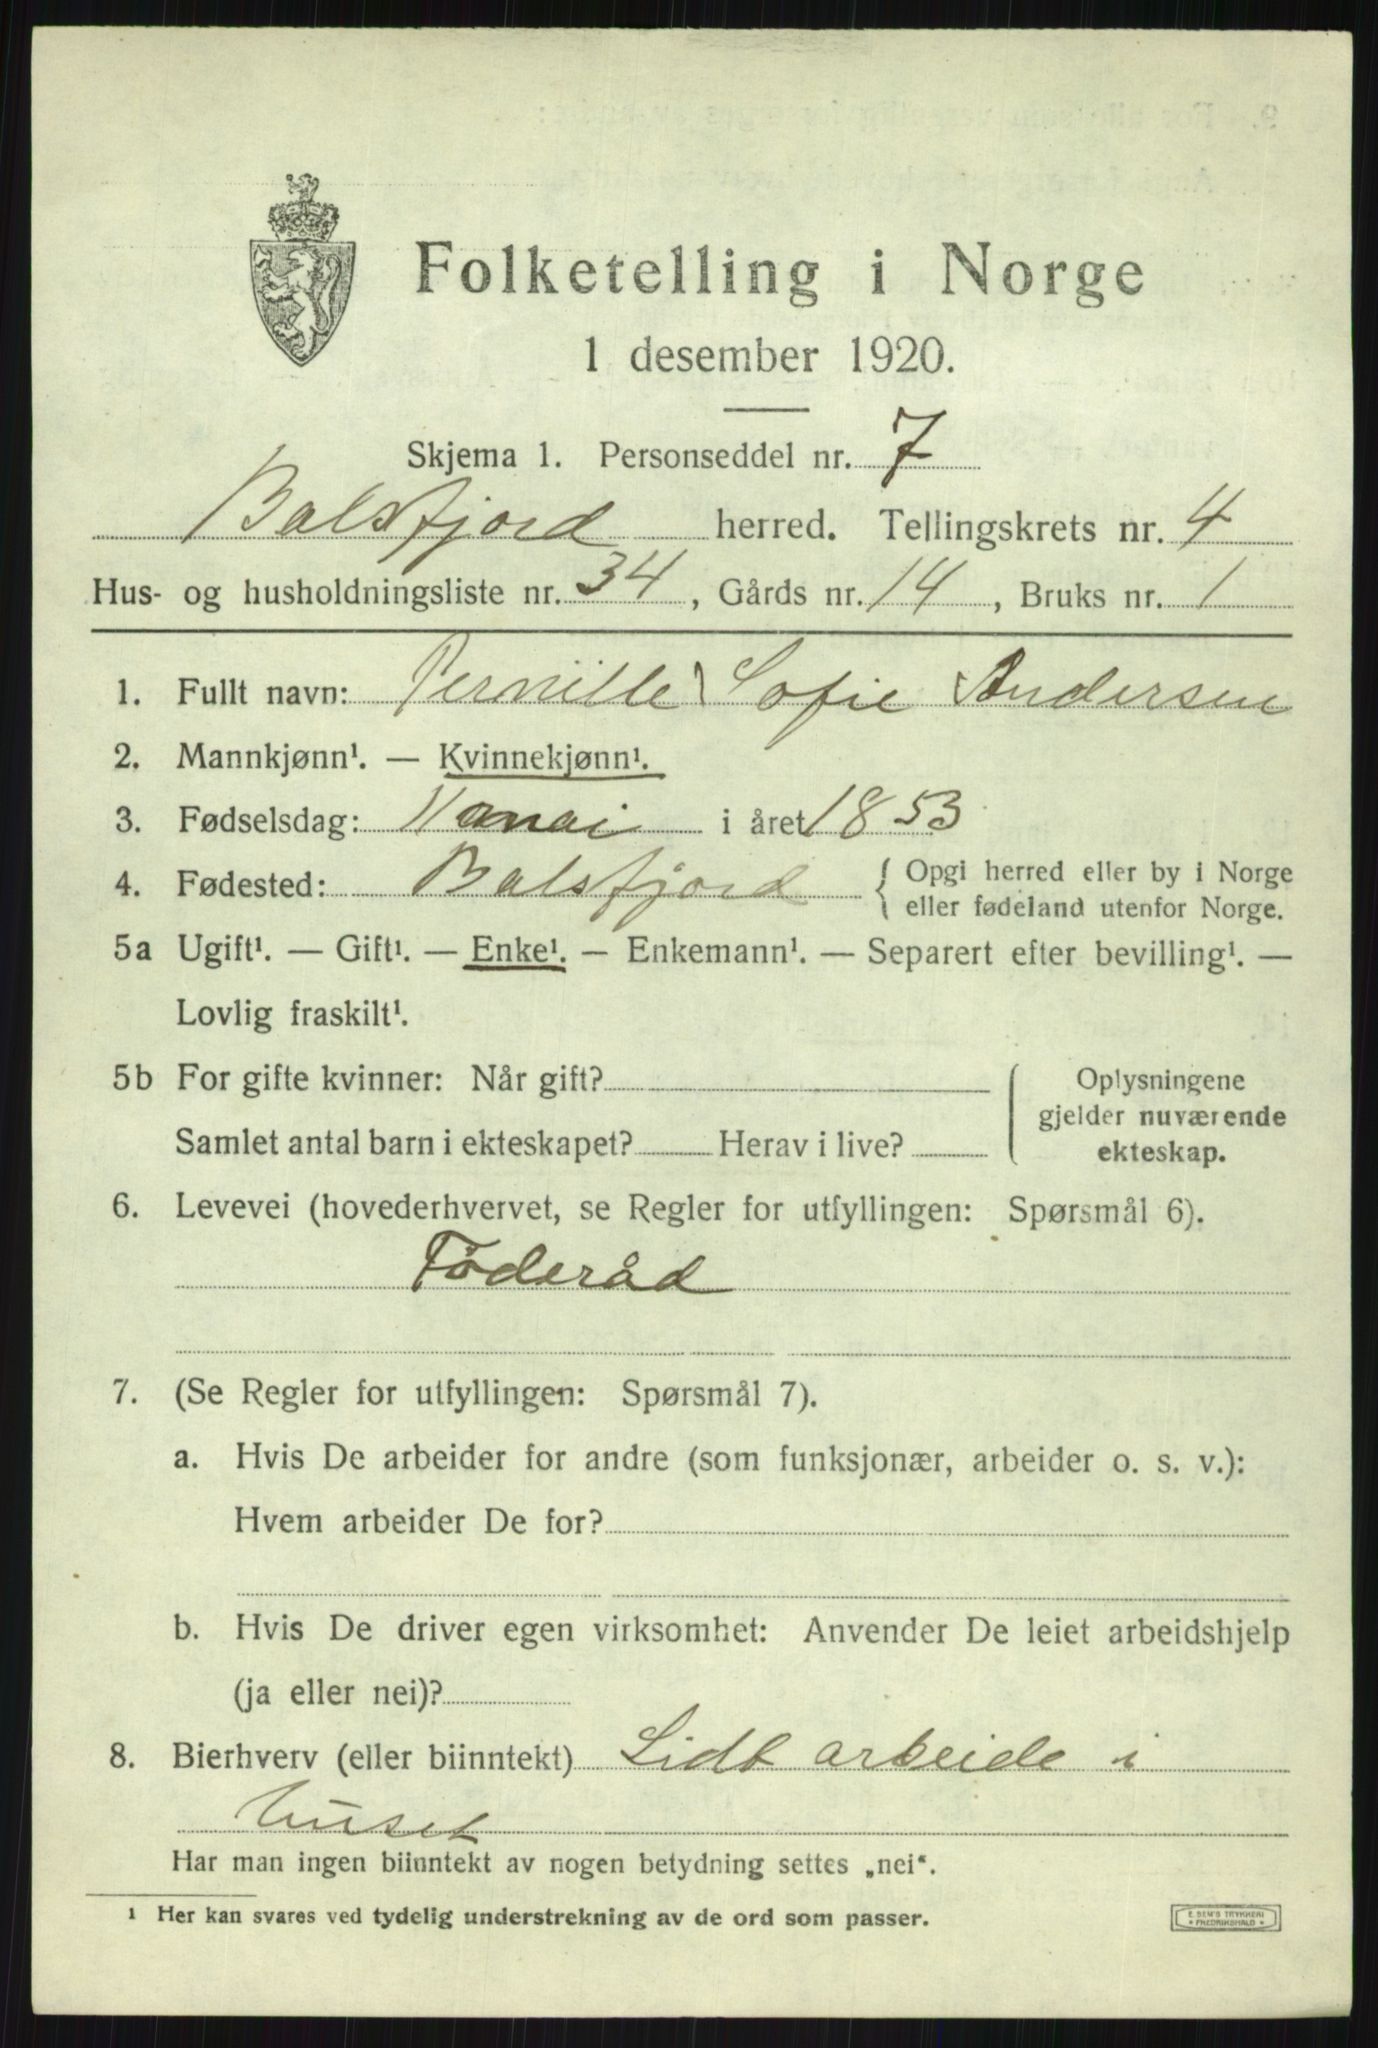 Folketelling i Norge
1 desember 1920.
Skjema 1. Personseddel nr. 7
Balsfjord herred. Tellingskrets nr. 4
Hus- og husholdningsliste nr. 34, Gårds nr. 14, Bruks nr. 1
1. Fullt navn: Pernille Sofie Andersen
2. Mannkjønn¹. — Kvinnekjønn¹.
3. Fødselsdag: mai i året 1853
4. Fødested: Balsfjord { Opgi herred eller by i Norge
eller fødeland utenfor Norge.
5a Ugift¹. — Gift¹. — Enke¹. — Enkemann¹. — Separert efter bevilling¹. —
Lovlig fraskilt¹.
5b For gifte kvinner: Når gift?
Samlet antal barn i ekteskapet? Herav i live?
Oplysningene
gjelder nuværende
ekteskap.
6. Levevei (hovederhvervet, se Regler for utfyllingen: Spørsmål 6).
Føderåd
7. (Se Regler for utfyllingen: Spørsmål 7).
a. Hvis De arbeider for andre (som funksjonær, arbeider o. s. v.):
Hvem arbeider De for?
b. Hvis De driver egen virksomhet: Anvender De leiet arbeidshjelp
(ja eller nei)?
8. Bierhverv (eller biinntekt) Lidt arbeide i
huset
Har man ingen biinntekt av nogen betydning settes „nei“.
¹ Her kan svares ved tydelig understrekning av de ord som passer.
E. SEM'S TRYKKERI
• FREDRIKSHALD •